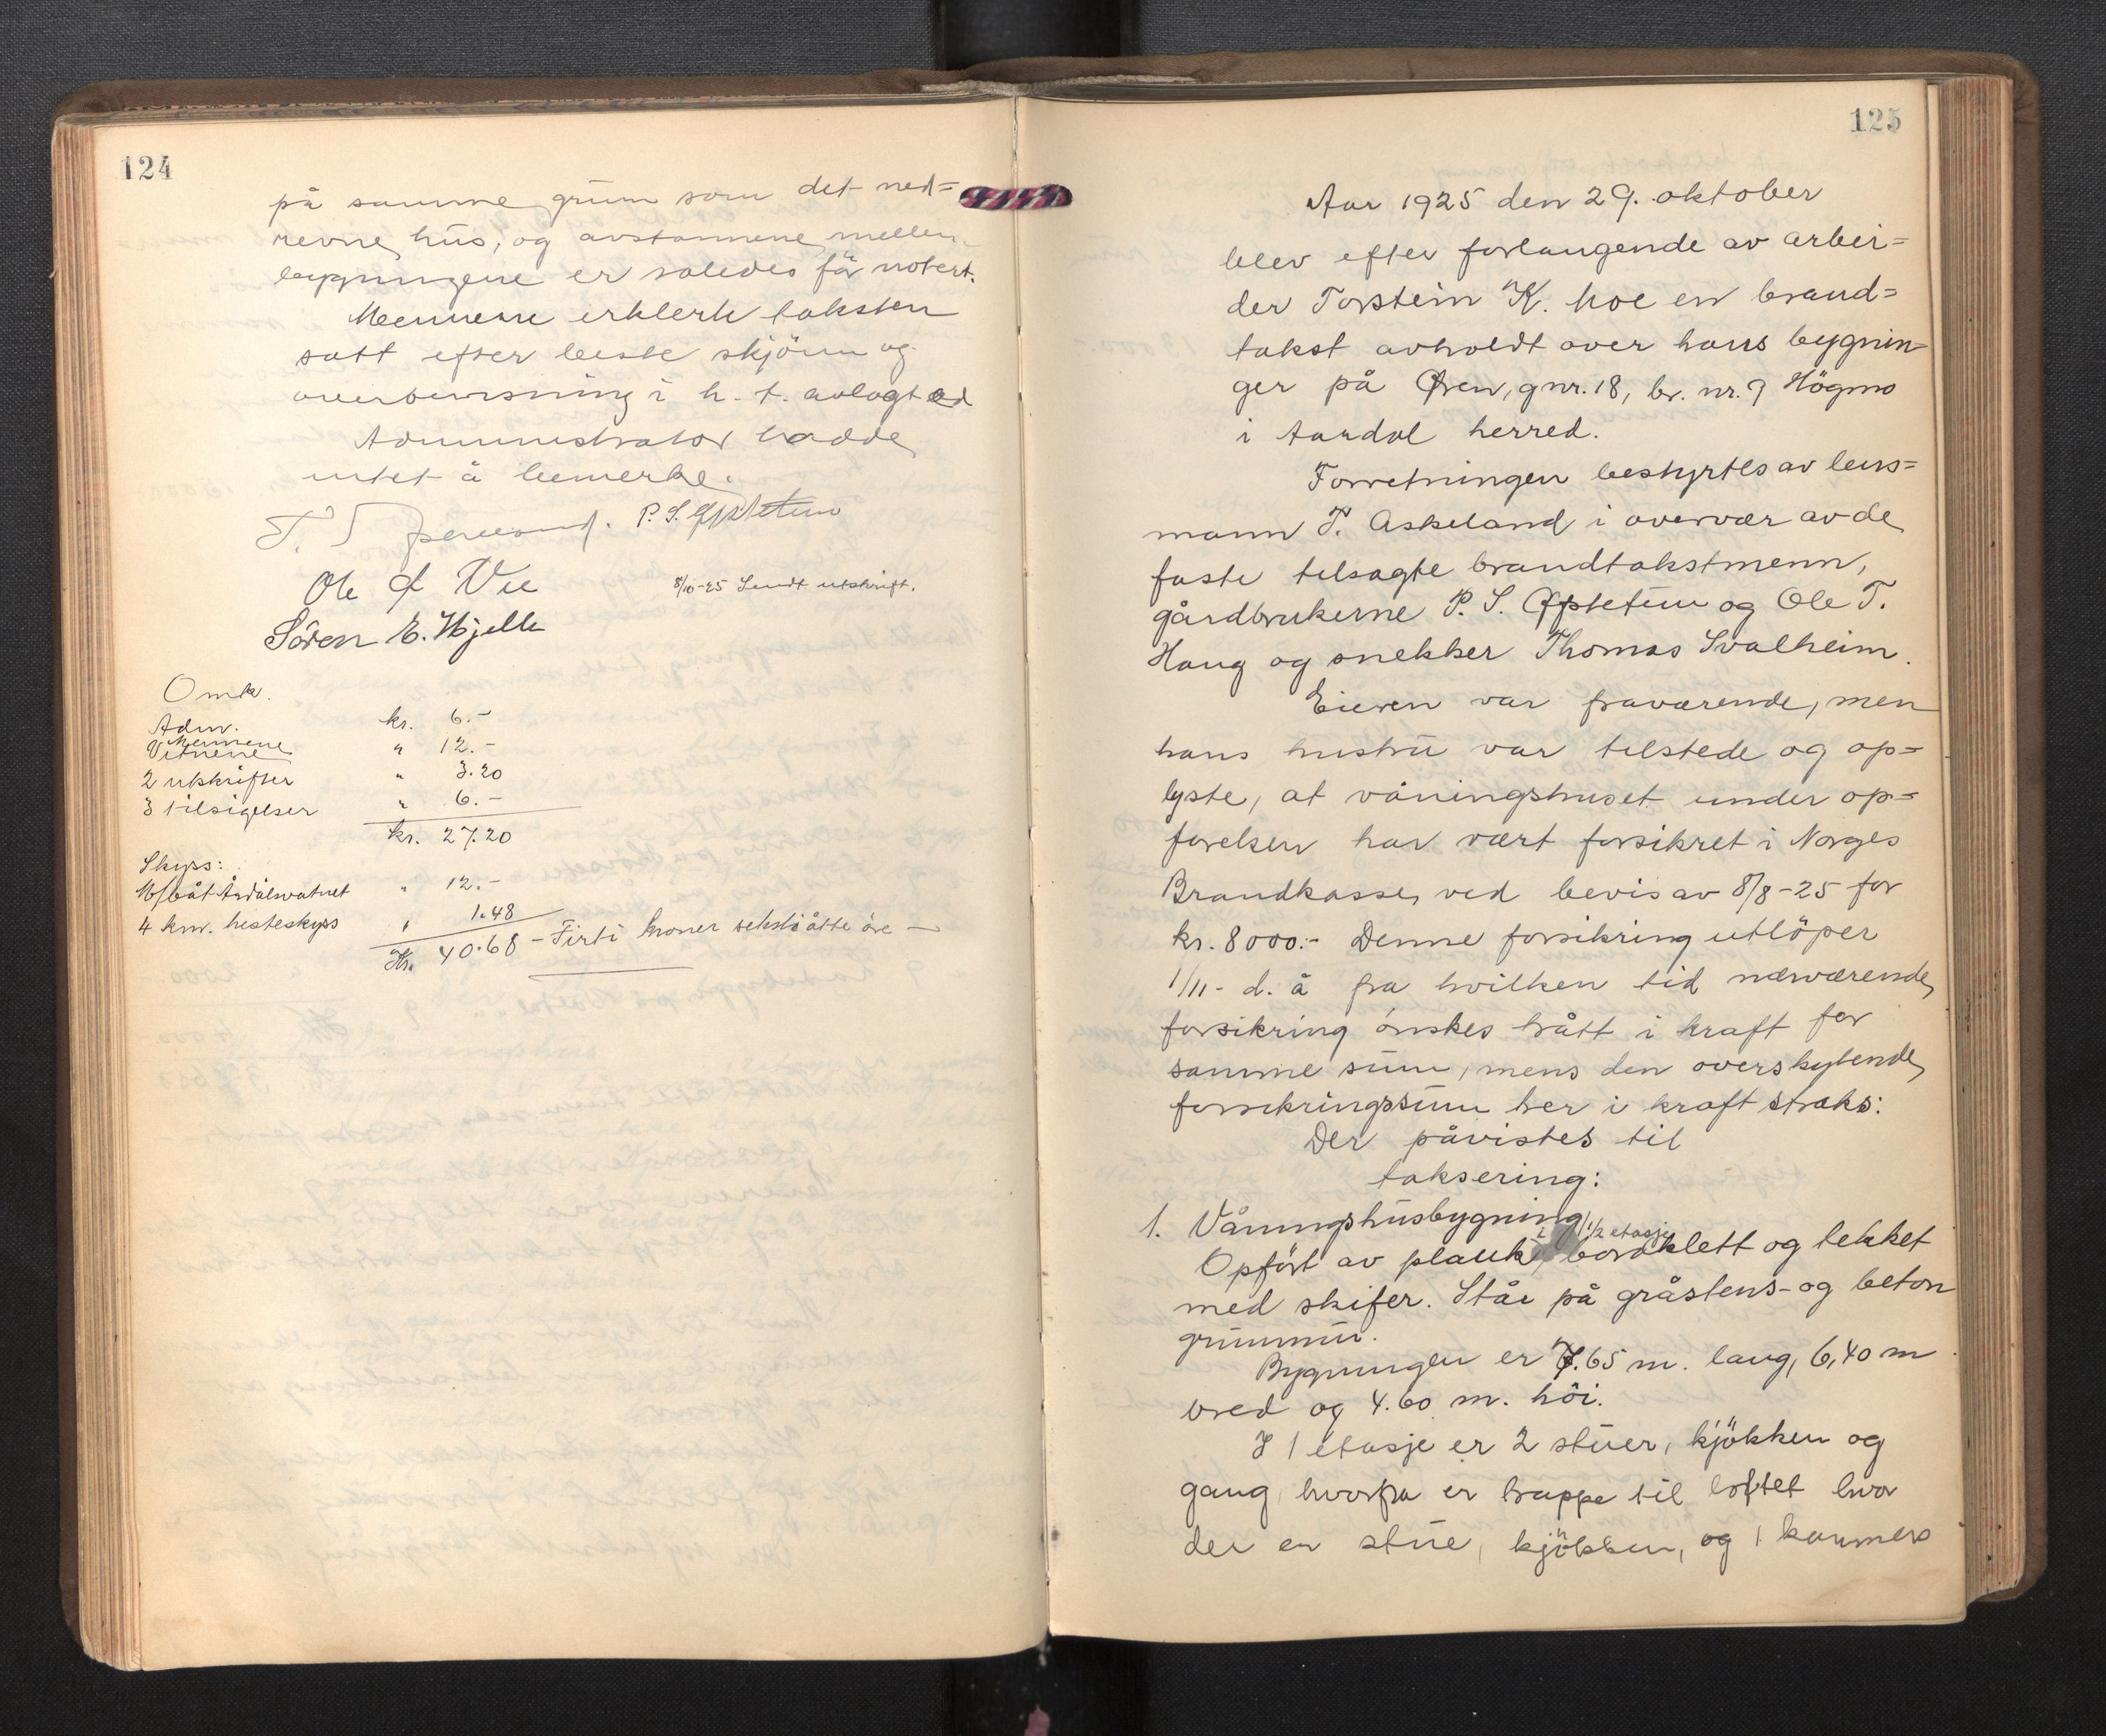 124
på samme grunn som det ned=
revne hus, og avstannene mellem
bygningene er således før notert.
Mennene erklerte taksten
satt efter beste skjönn og
overbevisning i h. t. avlagt ed
Administrator hadde
intet å bemerke.
P. S. Opstetun
Ole O Vee
8/10-25 Sendt utskrift.
Sören E. Hjelle
Omk.
Adm. kr. 6.-
Mennene
Vitnene " 12.-
2 utskrifter " 3.20
3 tilsigelser " 6.-
kr. 27.20
Skyss:
M/båt Årdalsvatnet " 12.-
4 km. hesteskyss " 1.48
Kr. 40.68 - Firti kroner sekstiåtte öre -
125
Aar 1925 den 29. oktober
blev efter forlangende av arbei=
der Torstein K. Moe en brand=
takst avholdt over hans bygnin=
ger på Øren, gnr. 18, br. nr. 9 Högmo
i Aardal herred.
Forretningen bestyrtes av lens=
mann T. Askeland i overvær av de
faste tilsagte brandtakstmenn,
gårdbrukerne P. S. Opstetun og Ole T.
Haug og snekker Thomas Svalheim.
Eieren var fraværende, men
hans hustru var tilstede og op=
lyste, at våningshuset under op=
førelsen har vært forsikret i Norges
Brandkasse, ved bevis av 8/8-25 for
kr. 8000.- Denne forsikring utlöper
1/11- d. å fra hvilken tid nærværende
forsikring önskes trått i kraft for
samme sum, mens den overskytende
forsikringssum trer i kraft straks:
Der påvistes til
taksering:
1. Våningshusbygning
i 1 1/2 etasje
Opfört av plank, bordklett og tekket
med skifer. Står på gråstens- og beton
grunnmur.
Bygningen er 7.65 m. lang, 6,40 m
bred og 4.60 m. höi.
I 1 etasje er 2 stuer, kjökken og
gang hvorfra er trappe til loftet hvor
der er stue, kjökken, og 1 kammers